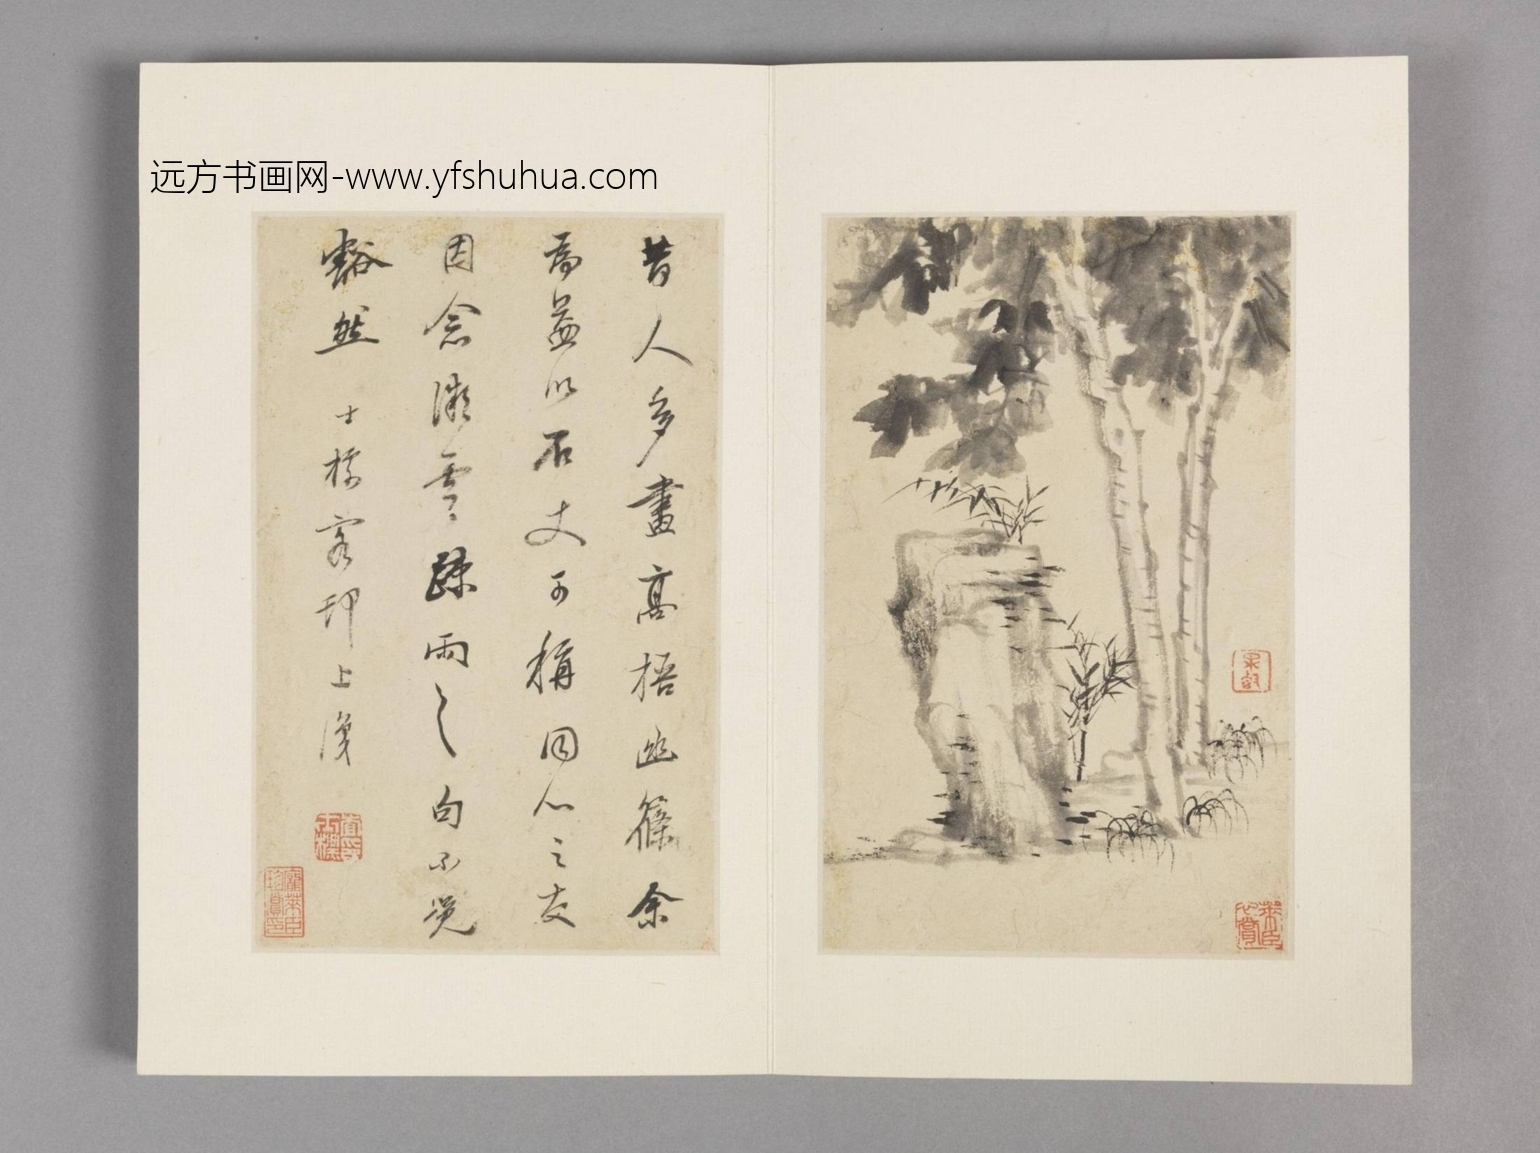 远方书画网-www.yfshuhua.com
昔人多畫高梧幽篠余
為益以石丈可稱同心之友
因念微雲疎雨之句不覺
豁然 士標客邗上漫
查士標印